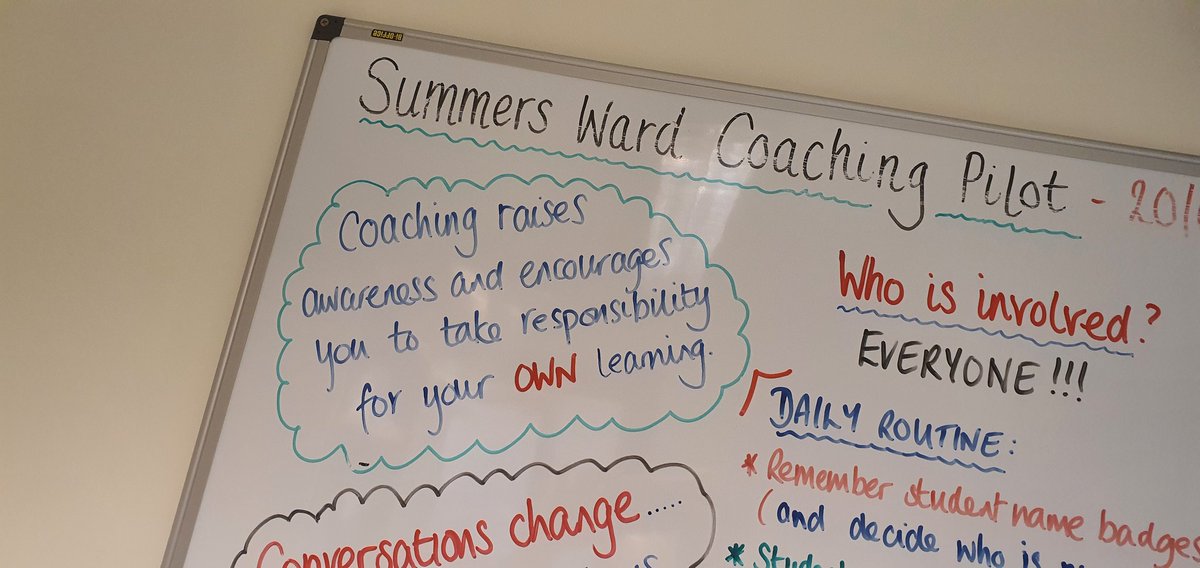 BI-OFFICE
Summers Ward Coaching Pilot -
Coaching raises
awareness and encourages
you to take responsibility
for your OWN learning.
Conversations change.....
Who is involved?
EVERYONE!!!
DAILY ROUTINE:
* Remember student name badges
(and decide who is
*